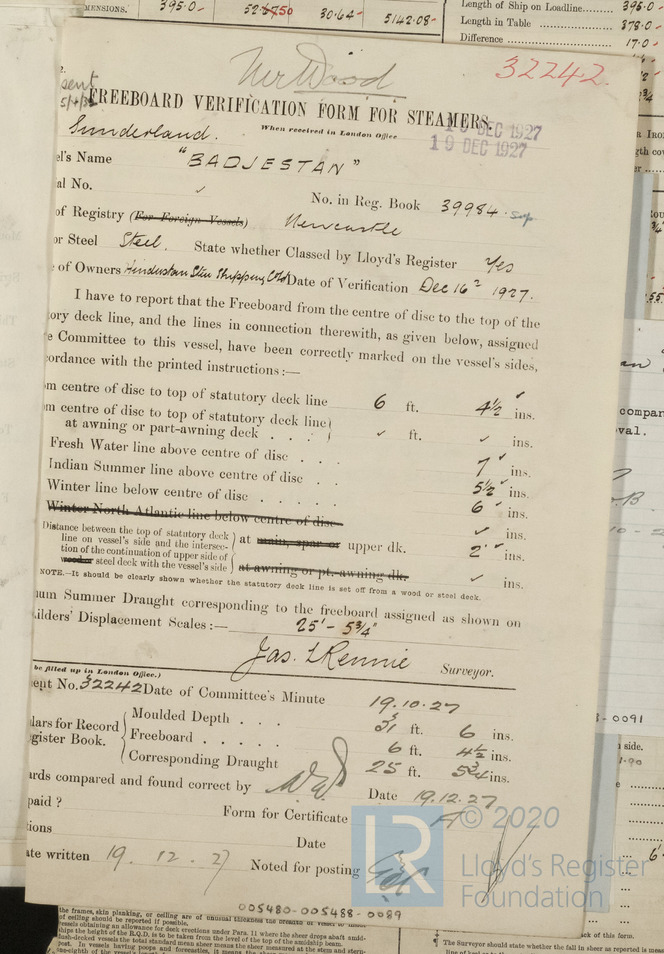 MENSIONS.
395.0
30.64
5142.08
Length of Ship on Loadline 395.0
Length in Table 378.0
Difference 17.0
2.
Mr Wood
32242.
sent
FREEBOARD VERIFICATION FORM FOR STEAMERS.
When received in London Office
19 DEC 1927
19 DEC 1927
Sunderland.
el's Name "BADJESTAN"
al No.
No. in Reg. Book 39984
of Registry (For Foreign Vessels) Newcastle
or Steel Steel. State whether Classed by Lloyd's Register Yes
e of Owners Hindustan Stm Shipping Co Ld Date of Verification Dec 16 1927.
I have to report that the Freeboard from the centre of disc to the top of the
tory deck line, and the lines in connection therewith, as given below, assigned
e Committee to this vessel, have been correctly marked on the vessel's sides,
cordance with the printed instructions:—
om centre of disc to top of statutory deck line 6 ft. 4½ ins.
om centre of disc to top of statutory deck line
at awning or part-awning deck . . . ✓ ft. ✓ ins.
Fresh Water line above centre of disc . . . 7 ins.
Indian Summer line above centre of disc . . 5½ ins.
Winter line below centre of disc . . . . . 6 ins.
Winter North Atlantic line below centre of disc ✓ ins.
Distance between the top of statutory deck
line on vessel's side and the intersec-
tion of the continuation of upper side of
wood or steel deck with the vessel's side
at main, spar or upper dk. 2 ins.
at awning or pt. awning dk. ✓ ins.
NOTE.—It should be clearly shown whether the statutory deck line is set off from a wood or steel deck.
num Summer Draught corresponding to the freeboard assigned as shown on
uilders' Displacement Scales:— 25' - 5¾"
Jas. L Rennie Surveyor.
be filled up in London Office.)
ent No. 32242 Date of Committee's Minute 19.10.27
lars for Record
gister Book.
Moulded Depth . . . 31 ft. 6 ins.
Freeboard . . . . . 6 ft. 4½ ins.
Corresponding Draught 25 ft. 5¾ ins.
ards compared and found correct by
Date 19.12.27
paid ?
Form for Certificate
tions
Date
ate written 19. 12. 27
Noted for posting
005480-005488-0089
LR
© 2020
Lloyd's Register
Foundation
the frames, skin planking, or ceiling are of unusual thickness the
of ceiling should be reported if possible.
B-0091
n side.
ck of this form.
The Surveyor should state whether the fall in sheer as reported is